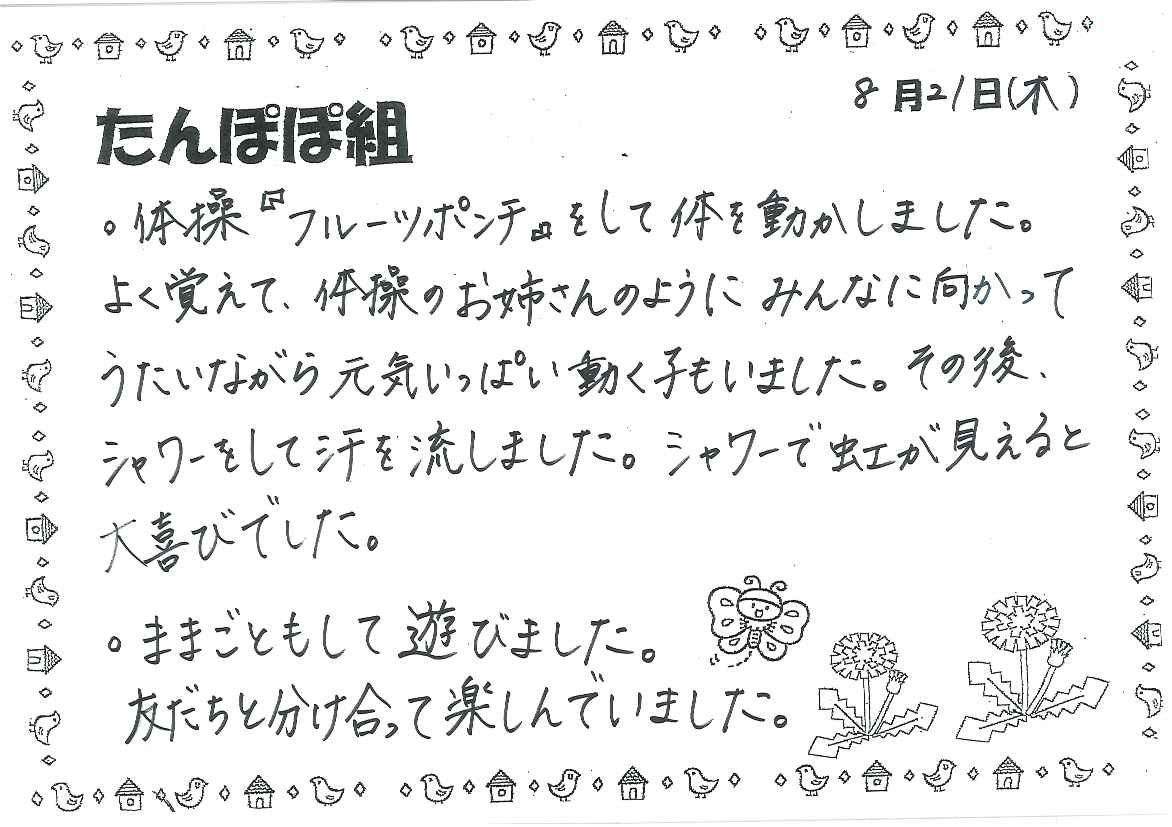 8月21日(木)
たんぽぽ組
。体操『フルーツポンチ』をして体を動かしました。
よく覚えて、体操のお姉さんのようにみんなに向かって
うたいながら元気いっぱい動く子もいました。その後、
シャワーをして汗を流しました。シャワーで虹が見えると
大喜びでした。
。ままごともして遊びました。
友だちと分け合って楽しんでいました。